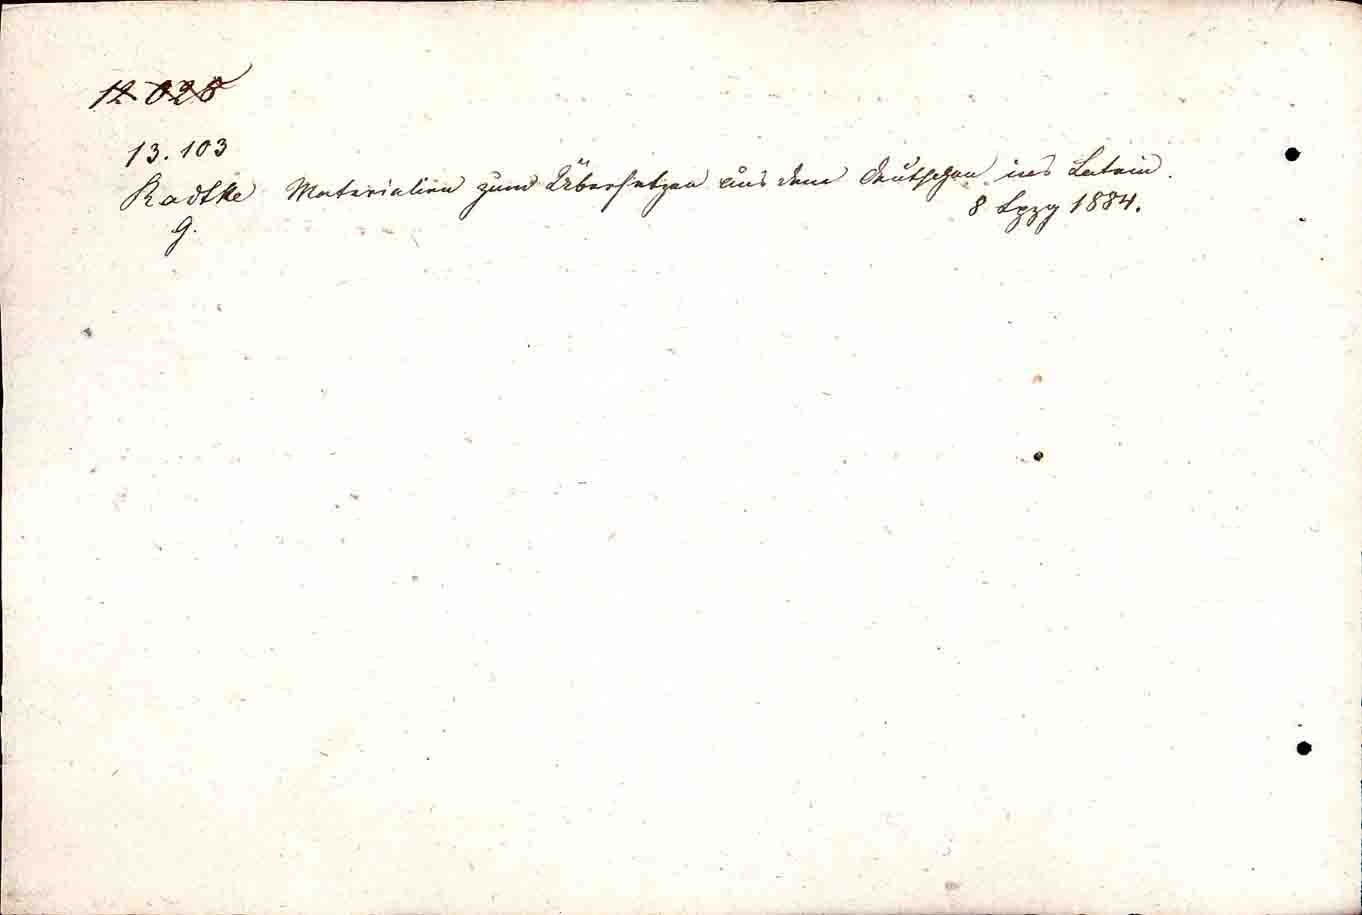 12 028
13.103
Radtke Materialien zum Übersetzen aus dem Deutschen ins Latein.
G. 8 Lpzg 1884.